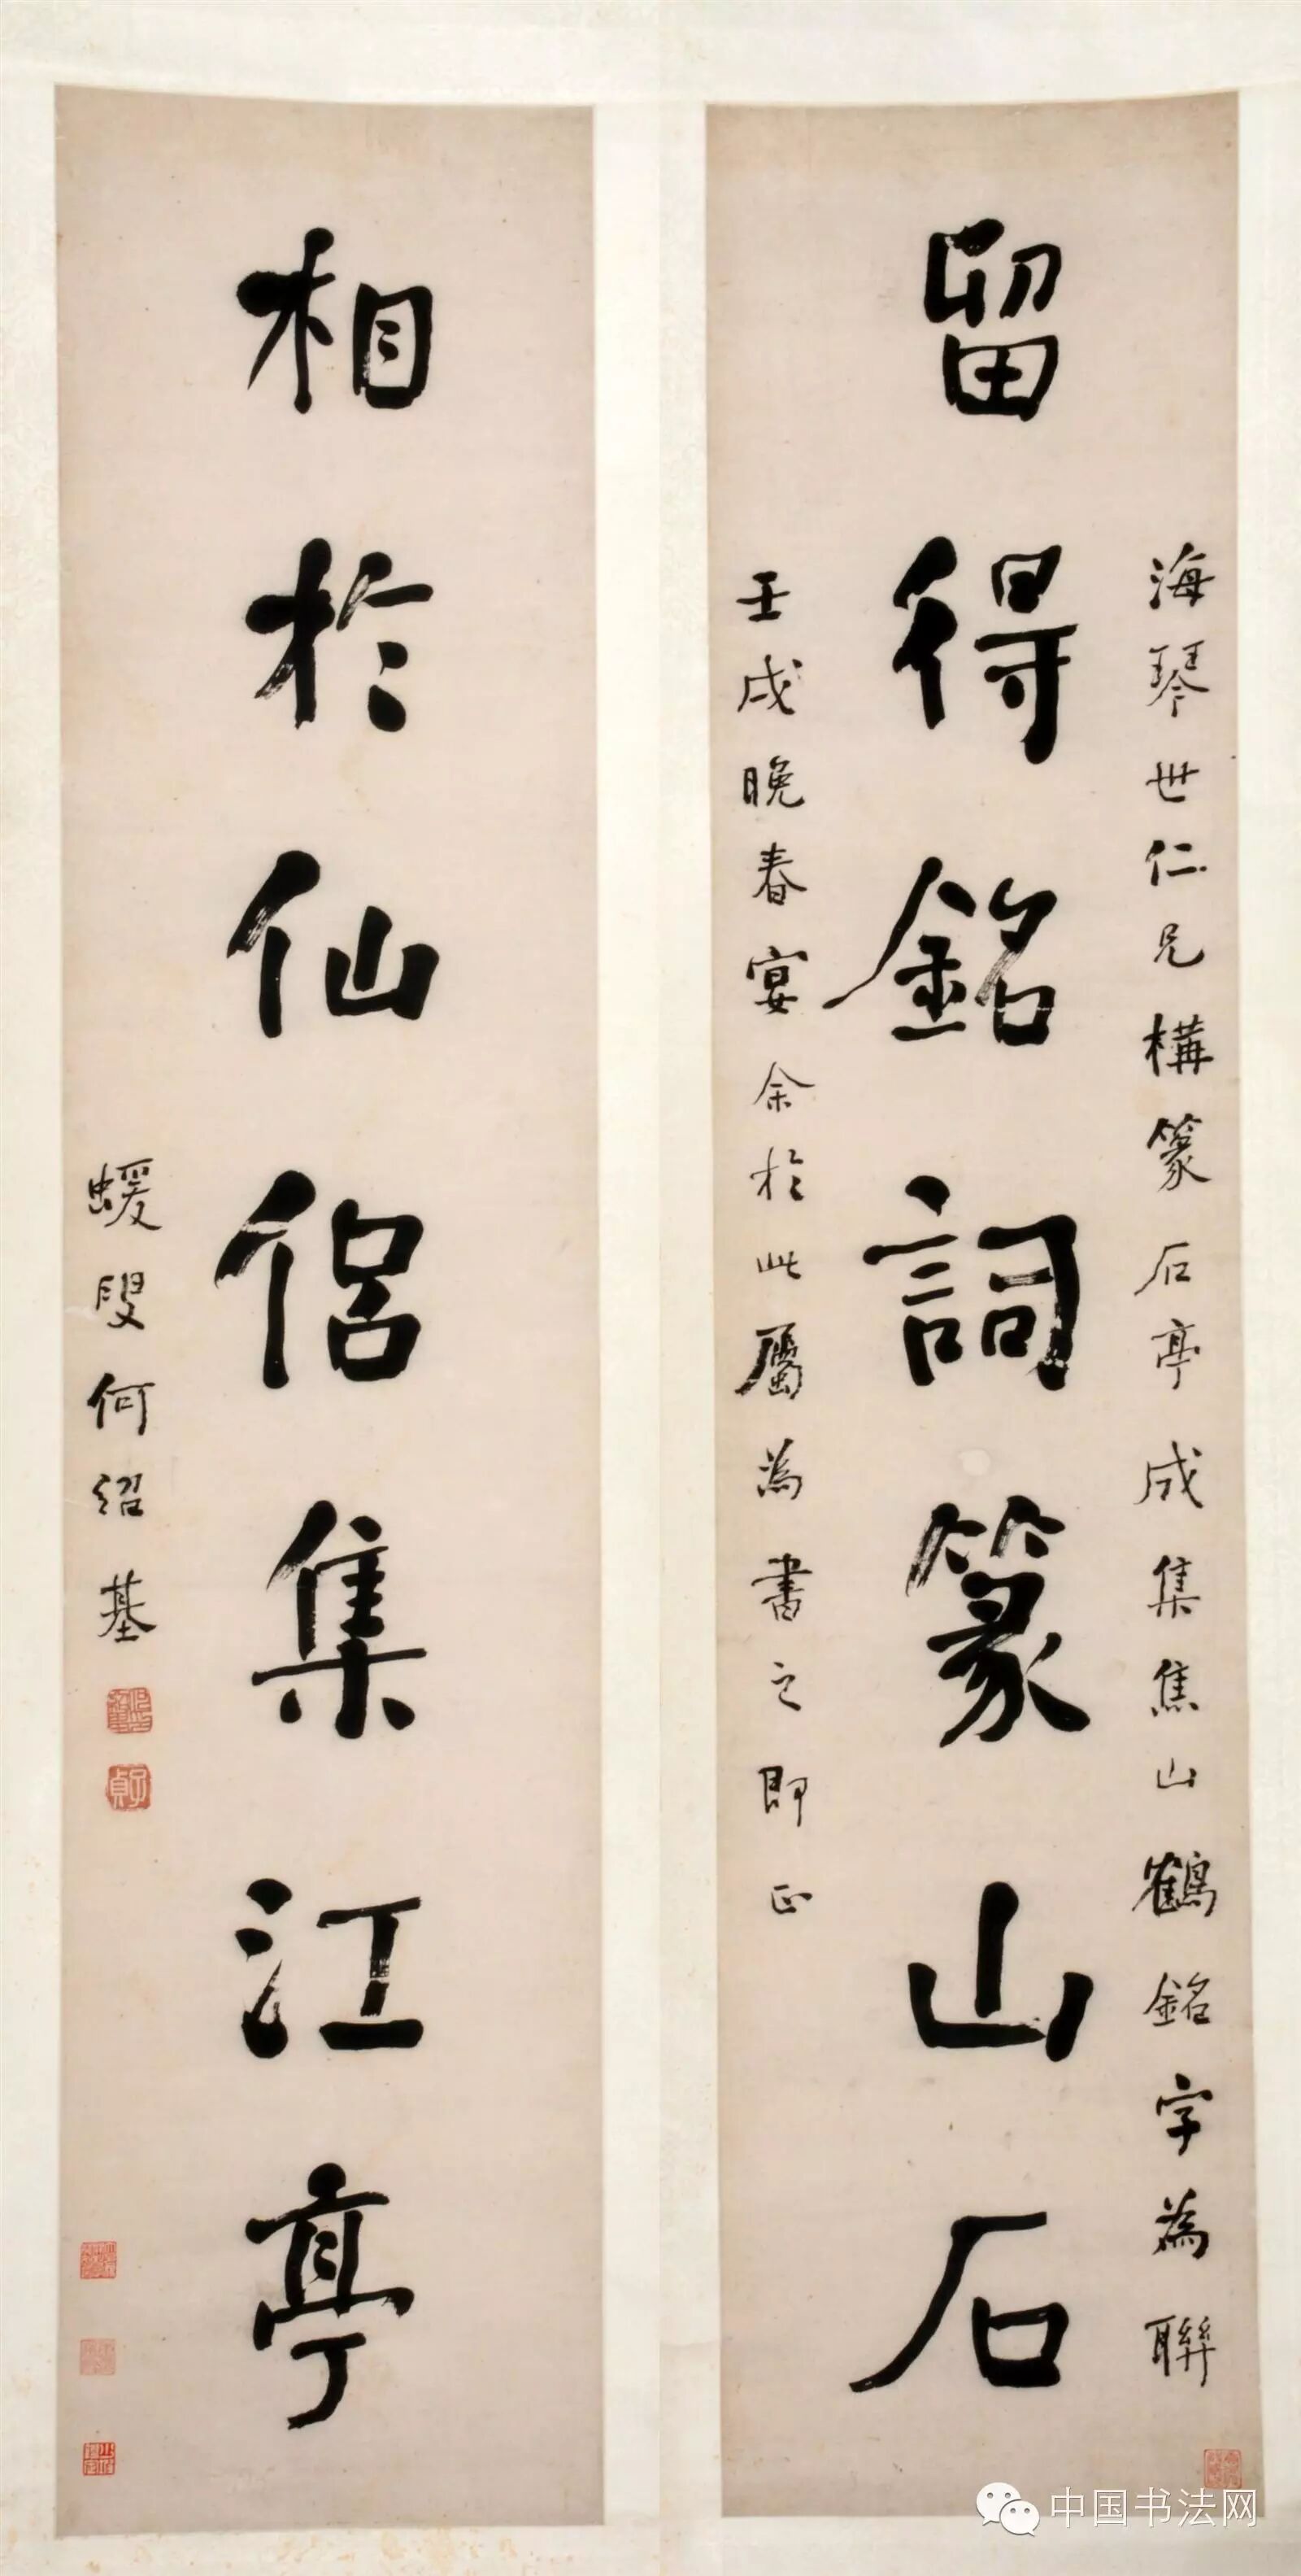 海琴世仁兄構篆石亭成集焦山鶴銘字為聯
留得銘詞篆山石
壬戌晚春宴余於此屬為書之即正
相於仙侶集江亭
蝯叟何紹基
子貞
中国书法网